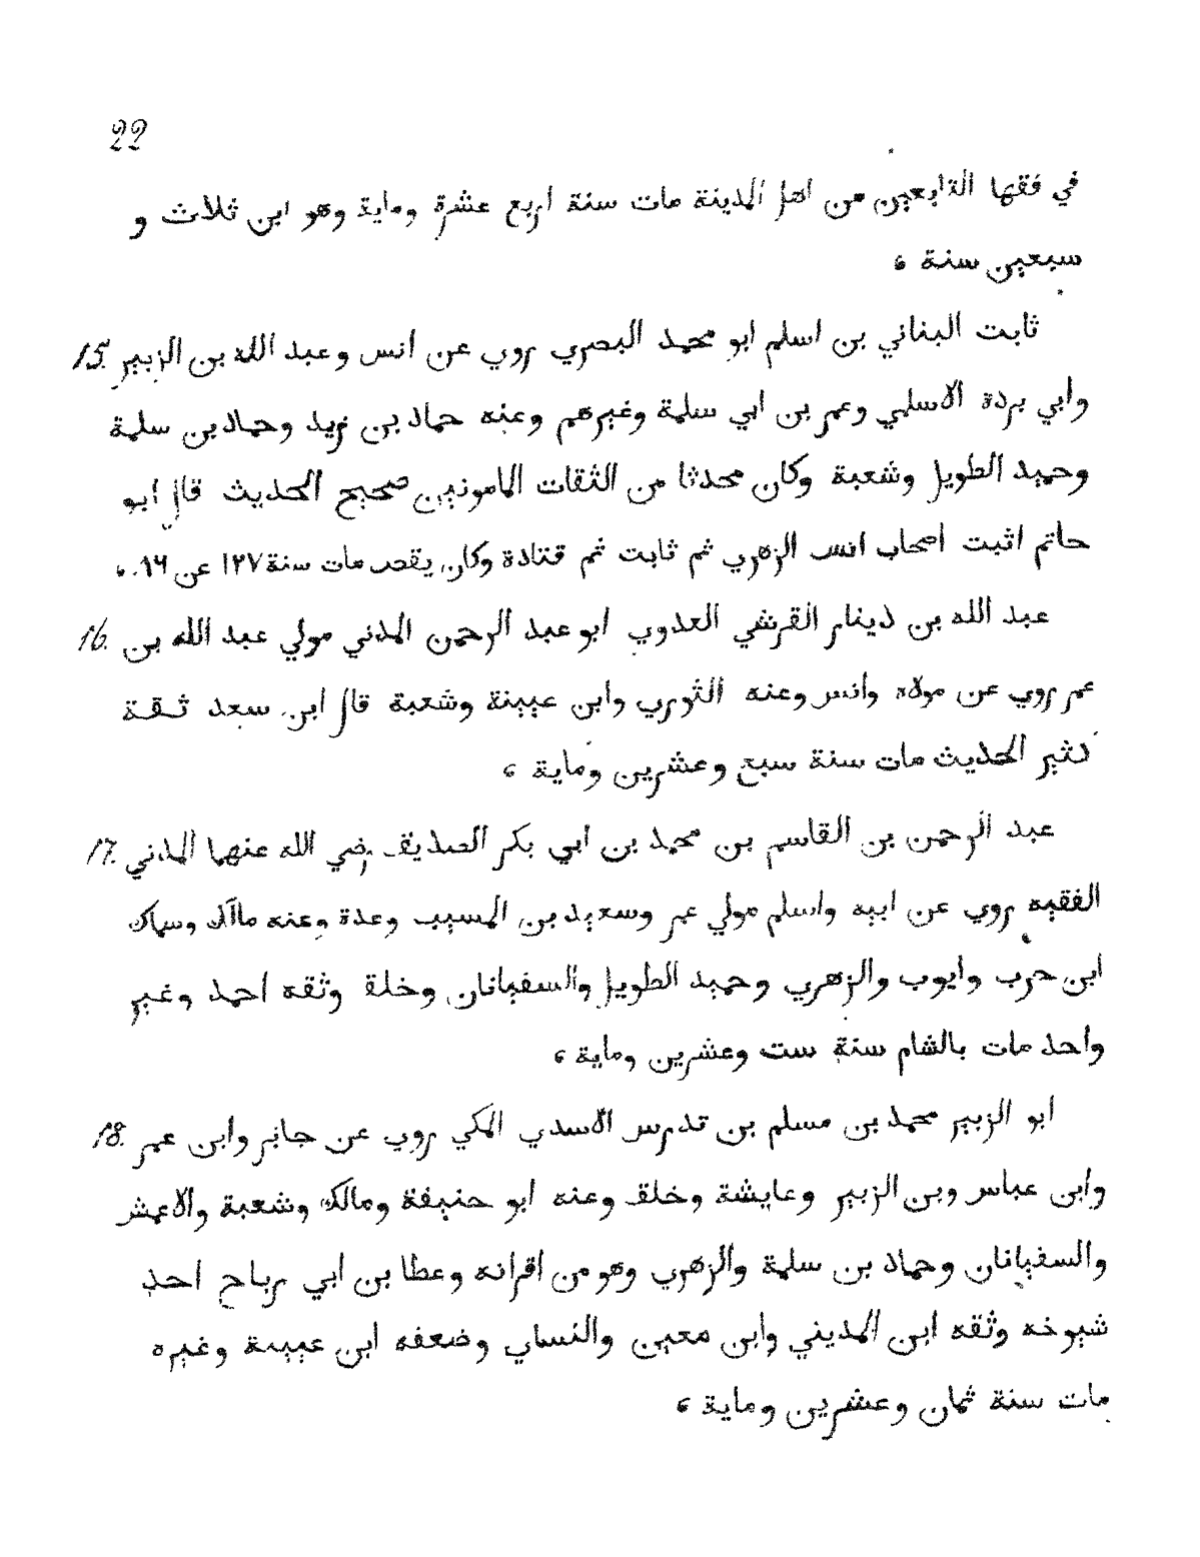 22
في فقها التابعين من اهل المدينة مات سنة اربع عشرة وماية وهو ابن ثلاث و
سبعين سنة ء
15. ثابت البناني بن اسلم ابو محمد البصري روي عن انس وعبد الله بن الزبير
وابي بردة الاسلمي وعمر بن ابي سلمة وغيرهم وعنه حماد بن زيد وحماد بن سلمة
وحميد الطويل وشعبة وكان محدثا من الثقات المامونين صحيح الحديث قال ابو
حاتم اثبت اصحاب انس الزهري ثم ثابت ثم قتادة وكان يقص مات سنة ١٢٧ عن
16. عبد الله بن دينار القرشي العدوي ابو عبد الرحمن المدني مولي عبد الله بن
عمر روي عن مولاه وانس وعنه الثوري وابن عيينة وشعبة قال ابن سعد ثقة
كثير الحديث مات سنة سبع وعشرين وماية ء
17. عبد الرحمن بن القاسم بن محمد بن ابي بكر الصديق رضي الله عنهما المدني
الفقيه روي عن ابيه واسلم مولي عمر وسعيد بن المسيب وعدة وعنه مالك وسماك
ابن حرب وايوب والزهري وحميد الطويل والسفيانان وخلق وثقه احمد وغير
واحد مات بالشام سنة ست وعشرين وماية ء
18. ابو الزبير محمد بن مسلم بن تدرس الاسدي المكي روي عن جابر وابن عمر
وابن عباس وبن الزبير وعايشة وخلق وعنه ابو حنيفة ومالك وشعبة والاعمش
والسفيانان وحماد بن سلمة والزهري وهو من اقرانه وعطا بن ابي رباح احد
شيوخه وثقه ابن المديني وابن معين والنساي وضعفه ابن عيينة وغيره
مات سنة ثمان وعشرين وماية ء